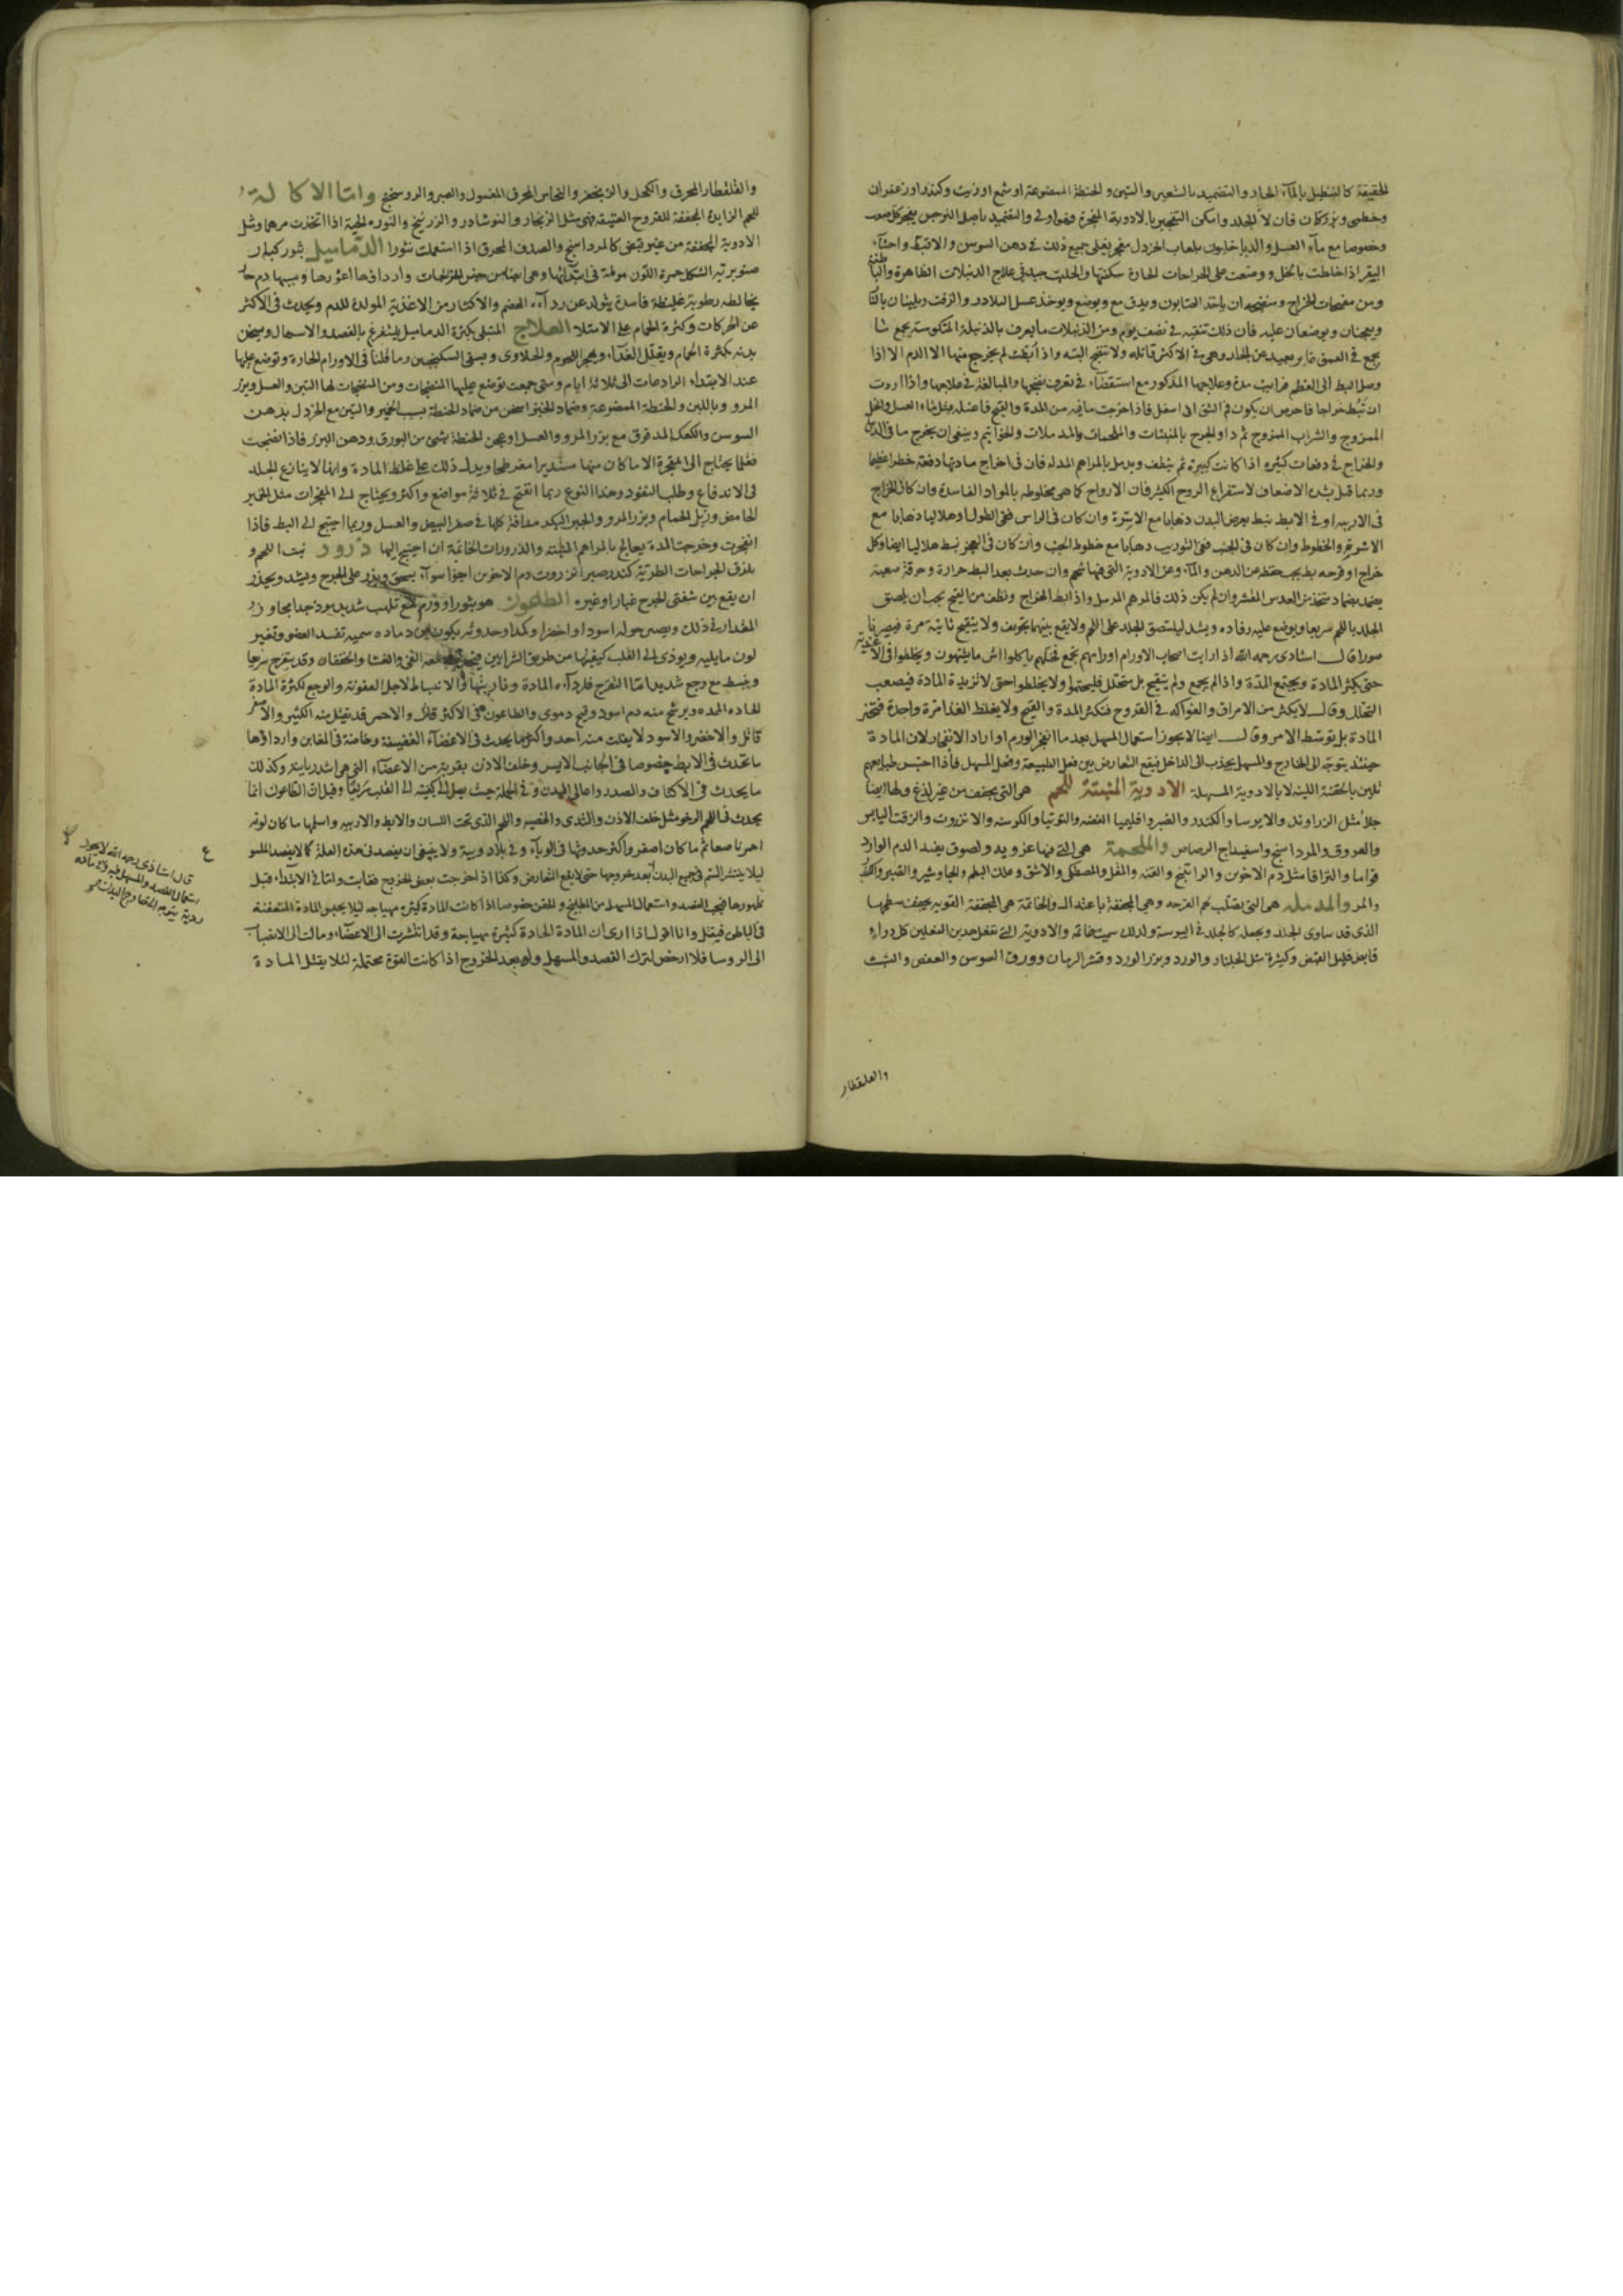 الحقيقة كالتنطيل بالماء الحار والتضميد بالشعير والتين والحنطة الممضوغة او شمع او زيت وكندر او زعفران
وخطمى وبزركتان فان لان الجلد وامكن التفجير بالادوية المفجرة فهو اولى والتضميد باصل النرجس يفجر كل صعب
وخصوصا مع ماء العسل والدياخليون بلعاب الخردل مفجر يغلى جميع ذلك فى دهن السوسن والاقط واخثاء
البقر اذا خلطت بالخل ووضعت على الجراحات الحارة سكنتها والحلتيت جيد فى علاج الدبيلات الظاهرة والباطنة
ومن مفجرات الخراج ومنضجه ان ياخذ الصابون ويدق مع ويوضع ويوخذ عسل البلادر والزفت ويلينان بالنار
ويعجنان ويوضعان عليه فان ذلك تنقيه فى نصف يوم ومن الدبيلات ما يعرف بالدبيلة المنكوسة يجمع
يجمع فى العمق غاير بعيد عن الجلد وهى فى الاكثر قاتله ولا تنفتح البته واذا بطت لم يخرج منها الا الدم الا اذا
وصل البط الى العظم وعلاجها المذكور مع استقصاء فى تعرف نضجها والمبالغة فى علاجها واذا اردت
ان تبط خراجا فاحرص ان يكون فى الشق الى اسفل فاذا اخرجت ما فيه من المدة والقيح فاغسله بمثل ماء العسل والخل
الممزوج والشراب الممزوج ثم داو الجرح بالمنبتات والملحمات والمدملات والخواتيم وينبغى ان يخرج ما فى
والخراج فى دفعات كثيرة اذا كانت كبيرة ثم ينظف ويدمل بالمراهم المدملة فان فى اخراج مادتها دفعة خطرا عظيما
وربما قتل بشدة الاضعاف لاستفراغ الروح الكثير فان الارواح كما هى مخلوطه بالمواد الفاسدة وان كان الخراج
فى الاربيه او فى الابط فبط بعرض البدن ذهابا مع الاسرة وان كان فى الراس ففى الطول او هلاليا ذهابا مع
والخطوط وان كان فى الجنب ففى التوريب ذهابا مع خطوط الجنب وان كان فى العجز فبط هلاليا ايضا وكل
خراج او قرحه بط يجب حفظه عن الدهن والماء وعن الادوية التى فيها شحم وان حدث بعد البط حرارة وحرقة صعبة
يضمد بضماد متخذ من العدس المقشر وان لم يكن ذلك فالمرهم المرسل واذا بط الخراج ونظف من القيح يجب ان يلصق
الجلد باللحم سريعا ويوضع عليه رفاده ويشد ليلتصق الجلد على اللحم ولا يقع بينهما تجويف ولا يتقيح ثانية مرة فيصير
قال استادى رحمه الله اذا رايت اصحاب الاورام اورامهم تجمع فخلهم ياكلوا ما يشتهون ويخلطوا فى الاغذية
حتى يكثر المادة ويجتمع المدة واذا لم يجمع ولم يتقيح بل يتحلل فليحتموا ولا يخلطوا حتى لا تزيد المادة فيصعب
التحلل وقال لا يكثر من الامراق والفواكه فى القروح فتكثر المدة والقيح ولا يغلظ الغذا مرة واحدة
المادة بل يتوسط الامر وقال ايضا لا يجوز استعمال المسهل بعد ما انفجر الورم او اراد الانفجار لان المادة
حينئذ يتوجه الى الخارج والمسهل يجذب الى الداخل فيقع التعارض بين فعل الطبيعة وفعل المسهل فاذا احتبس طبايعهم
تلين بالحقنة اللينه لا بالادوية المسهلة الادوية المنبتة للحم هى التى يجفف من غير لذع ولها ايضا
جلا مثل الزراوند والايرسا والكندر والصبر واقليميا الفضه والتوتيا والكرسنه والانزروت والزفت اليابس
والعروق والمرداسنج واسفيداج الرصاص والملحمة هى التى فيها تغرية ولصوق يفيد الدم الوارد
قواما والتزاقا مثل دم الاخوين والراتينج والقنه والمقل والمصطكى والاشق وعلك البطم والجاوشير والقنبر
والمر والمدملة هى التى يصلب لحم القرحه وهى المجففة باعتدال والخاتمة هى المجففة القويه يجفف سطحها
الذى قد ساوى الجلد ويجعله كالجلد فى اليبوسة ولذلك سميت خاتمه والادوية التى تفعل هذين الفعلين كل دواء
قابض قليل القبض وكثيره مثل الجلنار والورد وبزر الورد وقشر الرمان وورق السوسن والعفص والشب
والقلقطار
والقلقطار المحرق والكحل والزنجفر والنحاس المحرق المغسول والصبر والروسختج واما الاكالة
للحم الزايدة المجففة للقروح العتيقة فهى مثل الزنجار والنوشادر والزرنيخ والنوره الحية اذا اتخذت مرهما ومثل
الادوية المجففة من غير قبض كالمرداسنج والصدف المحرق اذا استعملت نثورا الدماميل بثور كبار
صنوبرية الشكل حمرة اللون مولمة فى ابتدائها وهى ايضا من جنس الخراجات واردأوها اغورها وسببها دم حار
يخالطه رطوبة غليظة فاسدة يتولد عن رداءة الهضم والاكثار من الاغذية المولدة للدم ويحدث فى الاكثر
عن الحركات وكثرة الحمام على الامتلا العلاج المبتلى بكثرة الدماميل يستفرغ بالفصد والاسهال ويسخن
بدنه بكثرة الحمام ويقلل الغذاء ويهجر اللحوم والحلاوى ويسقى السكنجبين وما قلنا فى الاورام الحارة وتوضع عليها
عند الابتداء الرادعات الى ثلاثة ايام ومتى جمعت توضع عليها المنضجات ومن المنضجات لها التين والعسل وبزر
المرو وباللبن والحنطة الممضوغة وضماد الخبز اسخن من ضماد الحنطة بسبب الخمير والتين مع الخردل بدهن
السوسن والكعك المدقوق مع بزر المرو والعسل او عجن الحنطة بشئ من البورق ودهن البزر فاذا نضجت
فقلما يحتاج الى المفجرة الا ما كان منها مستديرا مفرطحا ويدل ذلك على غلظ المادة وانها لا ينازع الجلد
فى الاندفاع وطلب النفوذ وهذا النوع ربما انفتح فى ثلاثة مواضع واكثر ويحتاج الى المفجرات مثل الخمير
الحامض وزبل الحمام وبزر المرو والجبن مدافة كلها فى صفر البيض والعسل وربما احتيج الى البط فاذا
انفجرت وخرجت المدة يعالج بالمراهم المنبته والذرورات الخاتمة ان احتيج اليها ذرور نبت اللحم و
يلزق الجراحات الطرية كندر صبر انزروت دم الاخوين اجزا سواء يسحق ويذر على الجرح ويشد ويحذر
ان يقع بين شفتى الجرح غبار او غيره الطاعون هو بثور او ورم مع تلهب شديد موذ جدا مجاوز
المقدار فى ذلك ويصير حوله اسود او اخضر او كمدا وحدوثه يكون من مادة سميه تفسد العضو وتغير
لون ما يليه ويوذى الى القلب كيفيتها من طريق الشرايين القى والغشا والخفقان وقد يتقرح سريعا
وينبسط مع وجع شديد اما التقرح فلرداءة المادة وفاريتها والانبساط لاجل العفونة والوجع لكثرة المادة
الحادة الممدده ويرشح منه دم اسود وقيح دموى والطاعون فى الاكثر قاتل والاحمر قد يقتل منه الكثير والاصفر
قاتل والاخضر والاسود لا يفلت منه احد واكثر ما يحدث فى الاعضاء الغضيضة وخاصة فى المغابن واردأوها
ما تحدث فى الابط خصوصا فى الجانب الايسر وخلف الاذن بقربه من الاعضاء التى هى اشد رياسة وكذلك
ما يحدث فى الاكتاف والصدر واعالى البدن وفى الجملة حيث يصل الى كيفيته الى القلب سريعا وقيل ان الطاعون انما
يحدث فى اللحم الرخو مثل خلف الاذن والثدى والخصيه واللحم الذى تحت اللسان والابط والاربيه واسلمها ما كان لونه
احمر ناصعا ثم ما كان اصفر واكثر حدوثها فى الوباء وفى بلاد وبيية ولا ينبغى ان يفصد فى هذه العلة كما لا يفصد الملسوع
ليلا ينتشر السم فى جميع البدن بعد خروجها حتى لا يقع التعارض وكذا اذا خرجت بعض الخروج واما فى الابتداء قبل
ظهورها فيجب الفصد واستعمال المسهل من المطابيخ والحقن خصوصا اذا كانت المادة كثيرة مهياجه ليلا يحبس المادة المتعفنة
فى الباطن فيقتل وانا اقول اذا ارى ان المادة الحادة كثيرة مهياجة وقد انتشرت الى الاعضاء ومالت الى الانصباب
الى الروسا فلا ارخص لترك الفصد والمسهل ولو بعد الخروج اذا كانت القوة محتملة لئلا يقتل المادة
قال استاذى رحمه الله لا يجوز
استعمال الفصد والمسهل فيه لان مادته
ردية